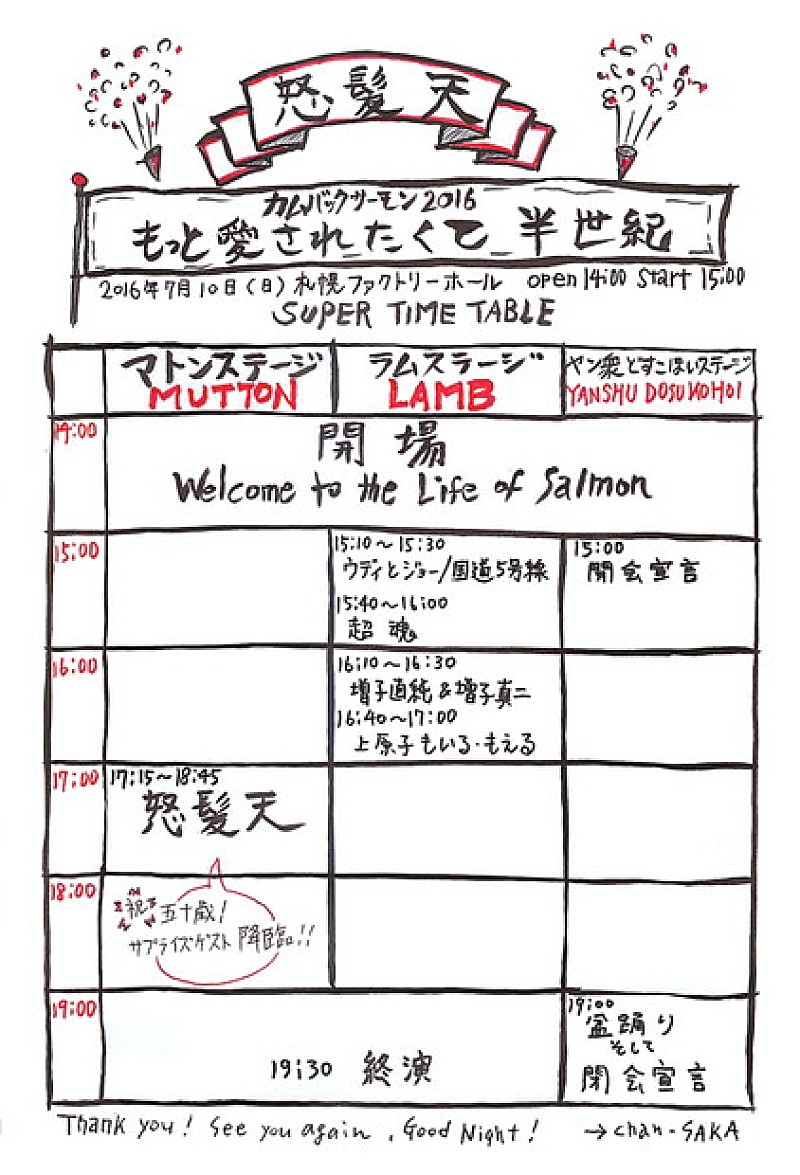 怒髪天
カムバックサーモン2016
もっと愛されたくて 半世紀
2016年7月10日(日)札幌ファクトリーホール open 14:00 Start 15:00
SUPER TIME TABLE
マトンステージ
MUTTON
ラムステージ
LAMB
ヤン衆どすこほいステージ
YANSHU DOSUKOHOI
14:00
開場
Welcome to the Life of Salmon
15:00
15:10〜15:30
ウディとジョー/国道5号線
15:40〜16:00
超魂
15:00
開会宣言
16:00
16:10〜16:30
増子直純&増子真二
16:40〜17:00
上原子もいる・もえる
17:00
17:15〜18:45
怒髪天
18:00
祝 五十歳!
サプライズゲスト 降臨!!
19:00
19:30 終演
19:00
盆踊り
そして
閉会宣言
Thank you! See you again, Good Night! →chan-SAKA